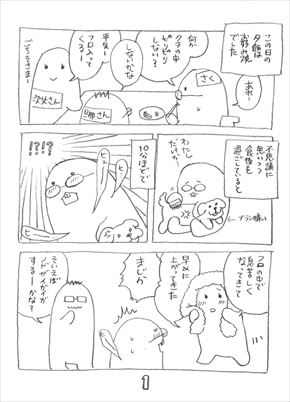 この日の
夕飯は
お好み焼
でした
さく
あれー
何か
クチの中
ピリピリ
しない?
しないかな
旦那さん
平気ー
フロ入って
くるー
次女さん
ごちそうさまー
不思議に
思いつつ
食後を
過ごしていると
わたし
だけか?
10分ほどで
ヒュー
ヒュー
!?!?
フロの中で
息苦しく
なってきて
早めに
上がってきた
まじか
そういえば
ノドがイガイガ
するーかな?
1